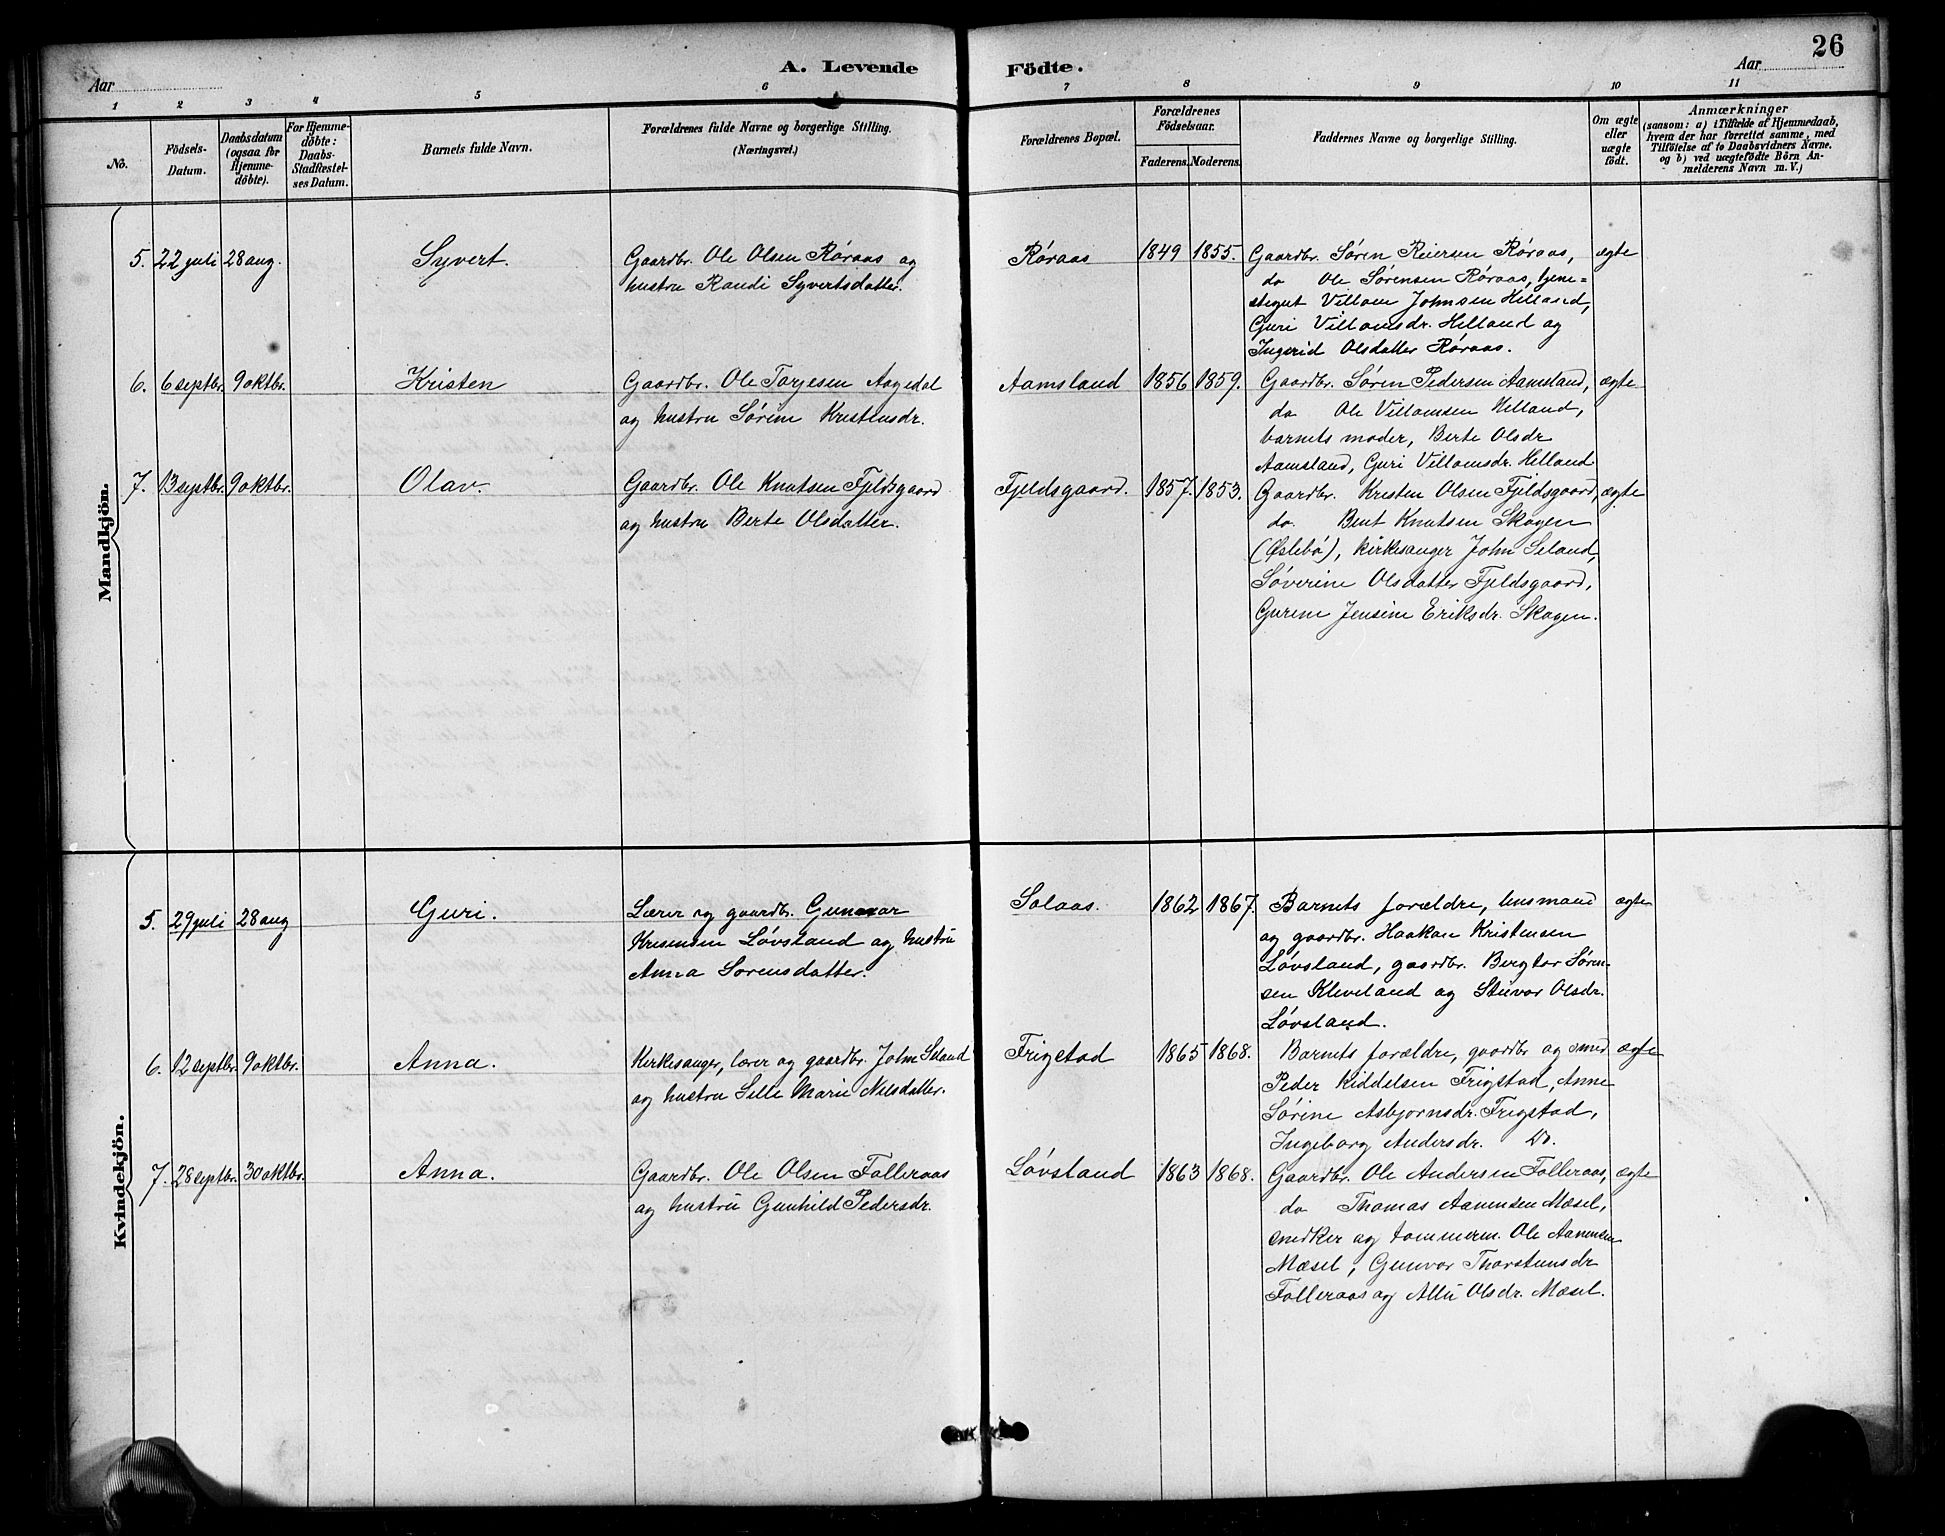 26
Aar
A. Levende Födte.
Aar
1 2 3 4 5 6 7 8 9 10 11
No.
Fødsels-Datum.
Daabsdatum (ogsaa for Hjemme-døbte).
For Hjemme-døbte: Daabs-Stadfæstel-ses Datum.
Barnets fulde Navn.
Forældrenes fulde Navne og borgerlige Stilling. (Næringsvei.)
Forældrenes Bopæl.
Forældrenes Fødselsaar.
Faderens. Moderens.
Faddernes Navne og borgerlige Stilling.
Om ægte eller uægte født.
Anmærkninger
(saasom: a) i Tilfælde af Hjemmedaab, hvem der har forrettet samme, med Tilføielse af to Daabsvidners Navne, og b) ved uægtefødte Børn An-melderens Navn m. V.)
Mandkjön.
5. 22 juli 28 aug. Syvert. Gaardbr. Ole Olsen Røraas og
hustru Randi Syvertsdatter.
Røraas 1849 1855. Gaardbr. Søren Reiersen Røraas, ægte
do Ole Sørensen Røraas, tjene=
stegut Villom Johnsen Helland,
Guri Villomsdr. Helland og
Ingerid Olsdatter Røraas.
6. 6 septbr. 9 oktbr. Kristen Gaardbr. Ole Tarjesen Aagedal
og hustru Sørine Kristensdr.
Aamsland 1856 1859. Gaardbr. Søren Pedersen Aamsland, ægte
do Ole Villomsen Helland,
barnets moder, Berte Olsdr
Aamsland, Guri Villomsdr. Helland
7. 13 septbr. 9 oktbr. Olav. Gaardbr. Ole Knutsen Fjeldsgaard
og hustru Berte Olsdatter.
Fjeldsgaard. 1857. 1853. Gaardbr. Kristen Olsen Fjeldsgaard, ægte
do. Bent Knutsen Skogen
(Øslebø), kirkesanger John Seland,
Søverine Olsdatter Fjeldsgaard,
Gurine Jensine Eriksdr. Skogen.
Kvindekjön.
5. 29 juli 28 aug Guri. Lærer og gaardbr. Gunvar
Løvsland og hustru
Anna Sorensdatter.
Solaas. 1862 1867. Barnets forældre, lensmand ægte
og gaardbr. Haakon Kristensen
Løvsland, gaardbr. Bergtor Søren-
sen Kleveland og Olsdr.
Løvsland.
6. 12 septbr. 9 oktbr. Anna. Kirkesanger, lærer og gaardbr. John Seland
og hustru Sille Marie Nilsdatter.
Frigstad 1865 1868. Barnets forældre, gaardbr og smed ægte
Peder Kiddelsen Frigstad, Anne
Sørine Asbjornsdr. Frigstad,
Ingeborg Andersdr. Do.
7. 28 septbr. 30 oktbr. Anna. Gaardbr. Ole Olsen Folleraas
og hustru Gunhild Pedersdr.
Løvsland 1863 1868. Gaardbr. Ole Andersen Folleraas, ægte
do Thomas Aanensen Mæsel,
snedker og tommerm. Ole Aanensen
Mæsel, Gunvor Thorstensdr
Folleraas og Olsdr. Mæsel.